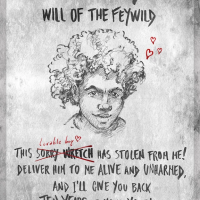 WILL OF THE FEYWILD
lovable boy
THIS SORRY WRETCH HAS STOLEN FROM ME!
DELIVER HIM TO ME ALIVE AND UNHARMED,
AND I'LL GIVE YOU BACK